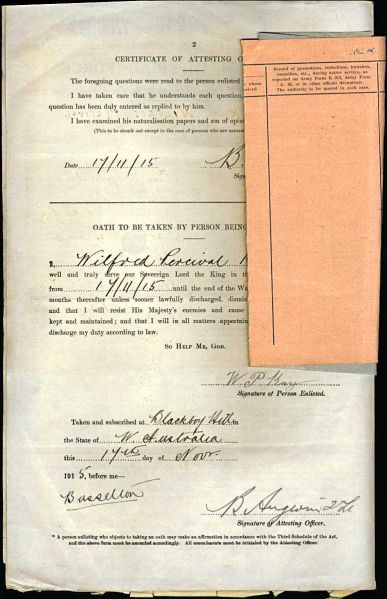 2
CERTIFICATE OF ATTESTING O
The foregoing questions were read to the person enlisted
I have taken care that he understands each question,
question has been duly entered as replied to by him.
I have examined his naturalisation papers and am of opini
(This to be struck out except in the case of persons who are natural
Date 17/11/15
B.
Sign
Record of promotions, reductions, transfers,
casualties, etc., during active service, as
reported on Army Form B 213, Army Form
A. 36, or in other official documents.
The authority to be quoted in each case.
OATH TO BE TAKEN BY PERSON BEING
I, Wilfred Percival
well and truly serve our Sovereign Lord the King in th
from 17/11/15 until the end of the Wa
months thereafter unless sooner lawfully discharged, dismis
and that I will resist His Majesty's enemies and cause
kept and maintained; and that I will in all matters appertain
discharge my duty according to law.
SO HELP ME, GOD.
W. P. Kay
Signature of Person Enlisted.
Taken and subscribed at Blackboy Hill in
the State of W. Australia
this 17th day of Novr.
1915, before me—
Busselton
B. Angwin 2nd Lt
Signature of Attesting Officer.
* A person enlisting who objects to taking an oath may make an affirmation in accordance with the Third Schedule of the Act,
and the above form must be amended accordingly. All amendments must be initialed by the Attesting Officer.